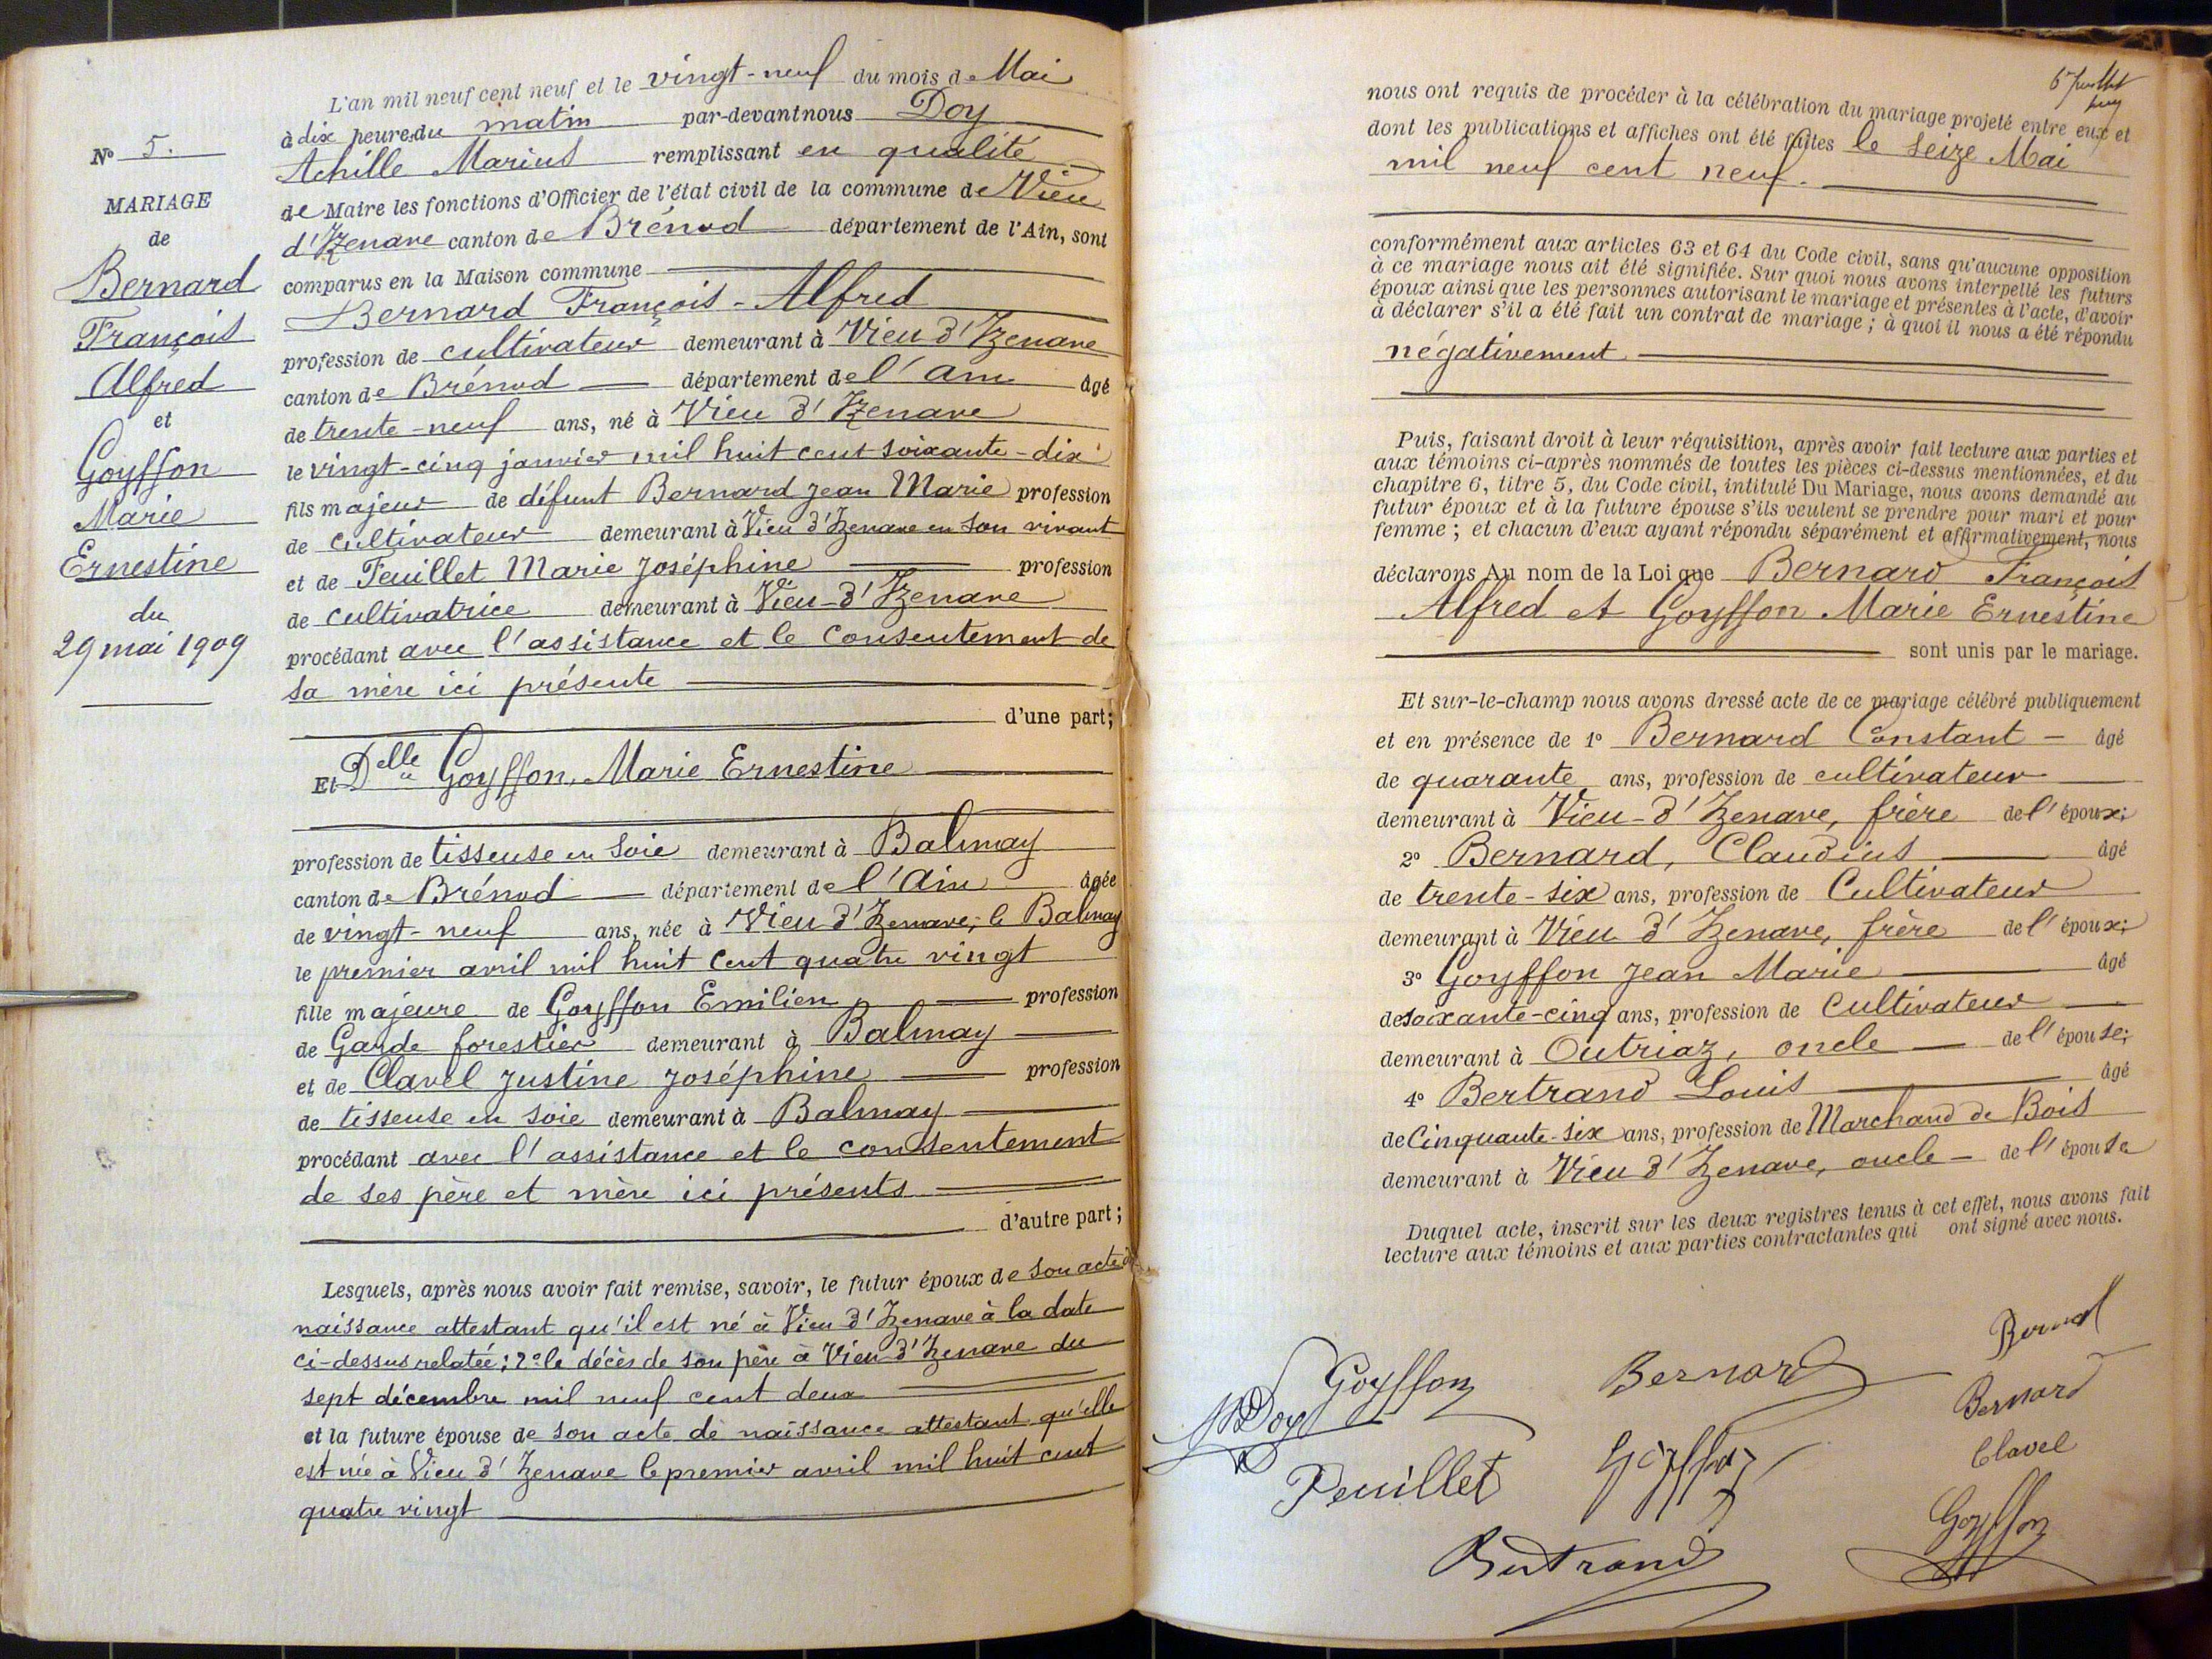 N° 5.
MARIAGE
de
Bernard
François
Alfred
et
Goyffon
Marie
Ernestine
du
29 mai 1909
L'an mil neuf cent neuf et le vingt-neuf du mois de Mai
à dix heures du matin par-devant nous Doy
Achille Marius remplissant en qualité
de Maire les fonctions d'Officier de l'état civil de la commune de Vieu
d'Izenave canton de Brénod département de l'Ain, sont
comparus en la Maison commune
Bernard François-Alfred
profession de cultivateur demeurant à Vieu d'Izenave
canton de Brénod département de l'Ain âgé
de trente-neuf ans, né à Vieu d'Izenave
le vingt-cinq janvier mil huit cent soixante-dix
fils majeur de défunt Bernard Jean Marie profession
de cultivateur demeurant à Vieu d'Izenave en son vivant
et de Feuillet Marie Joséphine profession
de cultivatrice demeurant à Vieu-d'Izenave
procédant avec l'assistance et le consentement de
sa mère ici présente
d'une part;
Et Delle Goyffon, Marie Ernestine
profession de tisseuse en soie demeurant à Balmay
canton de Brénod département de l'Ain âgée
de vingt-neuf ans, née à Vieu d'Izenave, le Balmay
le premier avril mil huit cent quatre vingt
fille majeure de Goyffon Emilien profession
de Garde forestier demeurant à Balmay
et de Clavel Justine Joséphine profession
de tisseuse en soie demeurant à Balmay
procédant avec l'assistance et le consentement
de ses père et mère ici présents
d'autre part;
Lesquels, après nous avoir fait remise, savoir, le futur époux de son acte de
naissance attestant qu'il est né à Vieu d'Izenave à la date
ci-dessus relatée; 2° le décès de son père à Vieu-d'Izenave du
sept décembre mil neuf cent deux
et la future épouse de son acte de naissance attestant qu'elle
est née à Vieu d'Izenave le premier avril mil huit cent
quatre vingt
nous ont requis de procéder à la célébration du mariage projeté entre eux et
dont les publications et affiches ont été faites le seize Mai
mil neuf cent neuf.
conformément aux articles 63 et 64 du Code civil, sans qu'aucune opposition
à ce mariage nous ait été signifiée. Sur quoi nous avons interpellé les futurs
époux ainsi que les personnes autorisant le mariage et présentes à l'acte, d'avoir
à déclarer s'il a été fait un contrat de mariage; à quoi il nous a été répondu
négativement.
Puis, faisant droit à leur réquisition, après avoir fait lecture aux parties et
aux témoins ci-après nommés de toutes les pièces ci-dessus mentionnées, et du
chapitre 6, titre 5, du Code civil, intitulé Du Mariage, nous avons demandé au
futur époux et à la future épouse s'ils veulent se prendre pour mari et pour
femme; et chacun d'eux ayant répondu séparément et affirmativement, nous
déclarons Au nom de la Loi que Bernard François
Alfred et Goyffon Marie Ernestine
sont unis par le mariage.
Et sur-le-champ nous avons dressé acte de ce mariage célébré publiquement
et en présence de 1° Bernard Constant - âgé
de quarante ans, profession de cultivateur
demeurant à Vieu-d'Izenave, frère de l'époux;
2° Bernard, Claudius âgé
de trente-six ans, profession de Cultivateur
demeurant à Vieu d'Izenave, frère de l'époux;
3° Goyffon Jean Marie âgé
de soixante-cinq ans, profession de Cultivateur
demeurant à Outriaz, oncle de l'épouse;
4° Bertrand Louis âgé
de Cinquante-six ans, profession de Marchand de Bois
demeurant à Vieu d'Izenave, oncle - de l'épouse
Duquel acte, inscrit sur les deux registres tenus à cet effet, nous avons fait
lecture aux témoins et aux parties contractantes qui ont signé avec nous.
Bernard
Goyffon Bernard
Doy Bernard
Clavel
Feuillet Goyffon
Goyffon
Bertrand